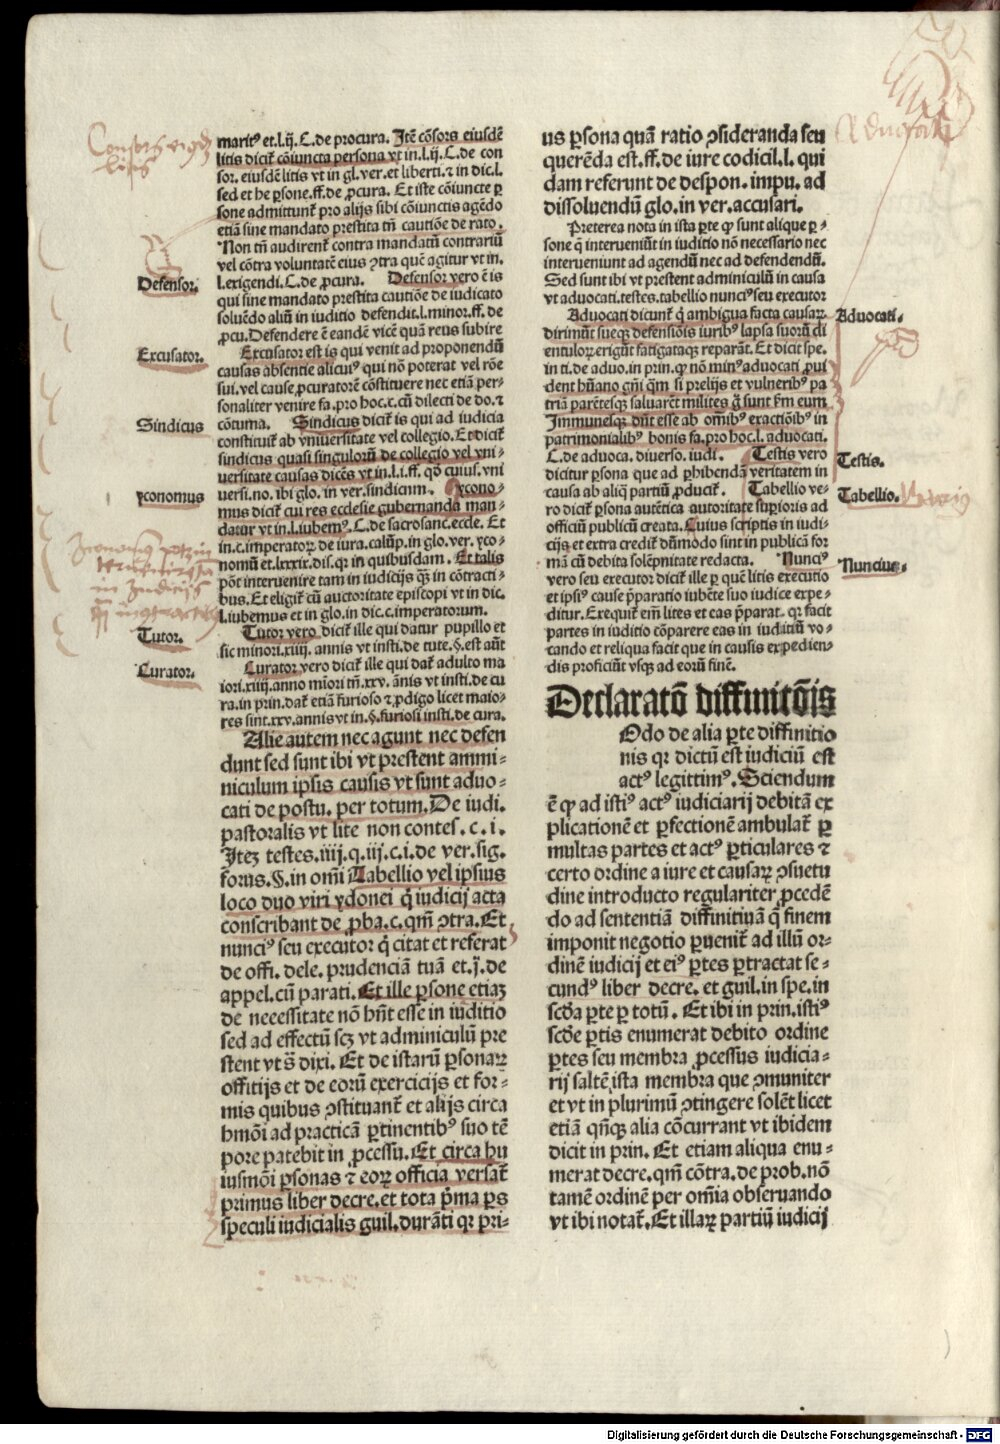 maritꝰ et.l.ij. C. de procura. Itē cōsors eiusdē
litis dicit̄ cōiuncta persona vt in.l.ij. C. de con
sor. eiusdē litis vt in gl. ver. et liberti. ⁊ in dic.l.
sed et he ꝑsone.ff. de ꝓcura. Et iste cōiuncte ꝑ
sone admittunt̄ pro alijs sibi cōiunctis agēdo
etiā sine mandato prestita tn̄ cautiōe de rato.
Non tn̄ audirent̄ contra mandatū contrariū
vel cōtra voluntatē eius ꝯtra quē agitur vt in.
l. exigendi. C. de ꝓcura. Defensor vero ē is
qui sine mandato prestita cautiōe de iudicato
soluēdo aliū in iuditio defendit.l. minor.ff. de
ꝓcu. Defendere ē eandē vicē quā reus subire
Excusator est is qui venit ad proponendū
causas absentie alicuiꝰ qui nō poterat vel rōe
sui. vel cause ꝓcuratorē cōstituere nec etiā per-
sonaliter venire fa. pro hoc.c. cū dilecti de do. ⁊
cōtuma. Sindicus dicit̄ is qui ad iudicia
constituit̄ ab vniuersitate vel collegio. Et dicit̄
sindicus quasi singulorū de collegio vel vni-
uersitate causas dicēs vt in.l.i.ff. qđ cuius. vni
uersi. no. ibi glo. in ver. sindicum. Ycono-
mus dicit̄ cui res ecclesie gubernanda man-
datur vt in.l. iubemꝰ. C. de sacrosanc. eccle. Et
in.c. imperatorꝝ de iura. calūp. in glo. ver. yco-
nomū et.lxxxix. dis. qꝛ in quibusdam. Et talis
pōt interuenire tam in iudicijs q̄ꝫ in cōtracti-
bus. Et eligit̄ cū auctoritate episcopi vt in dic.
l. iubemus et in glo. in dic.c. imperatorum.
Tutor vero dicit̄ ille qui datur pupillo et
sic minori.xiiij. annis vt insti. de tute. §. est aūt
Curator vero dicit̄ ille qui dat̄ adulto ma
iori.xiiij. anno mīori tn̄.xxv. ānis vt insti. de cu
ra. in prin. dat̄ etiā furioso ⁊ ꝓdigo licet maio-
res sint.xxv. annis vt in. §. furiosi insti. de cura.
Alie autem nec agunt nec defen
dunt sed sunt ibi vt prestent ammi-
niculum ipsis causis vt sunt aduo-
cati de postu. per totum. De iudi.
pastoralis vt lite non contes. c. i.
Itez testes. iiij. q. iij. c. i. de ver. sig.
forus. §. in om̄i Tabellio vel ipsius
loco duo viri ydonei q̄ iudicij acta
conscribant de ꝓba. c. qm̄ ꝯtra. Et
nunciꝰ seu executor q̄ citat et referat
de offi. dele. prudenciā tuā et. §. de
appel. cū parati. Et ille ꝑsone etiaꝫ
de necessitate nō hn̄t esse in iuditio
sed ad effectū scꝫ vt adminiculū pre
stent vt s̄ dixi. Et de istarū ꝑsonaꝝ
offitijs et de eorū exercicijs et for-
mis quibus ꝯstituant̄ et alijs circa
hmōi ad practicā ꝑtinentibꝰ suo tē
pore patebit in ꝓcessu. Et circa hu
iusmōi ꝑsonas ⁊ eoꝝ officia versat̄
primus liber decre. et tota p̄ma ꝑs
speculi iudicialis guil. durāti qꝛ pri-
Defensor.
Excusator.
Sindicus
yconomus
Tutor.
Curator.
us ꝑsona quā ratio ꝯsideranda seu
querēda est. ff. de iure codicil. l. qui
dam referunt de despon. impu. ad
dissoluendū glo. in ver. accusari.
Preterea nota in ista ꝑte ꝙ sunt alique ꝑ-
sone q̄ interueniūt in iuditio nō necessario nec
interueniunt ad agendū nec ad defendendū.
Sed sunt ibi vt prestent adminiculū in causa
vt aduocati. testes. tabellio nunciꝰ seu executor
Aduocati dicunt̄ q̄ ambigua facta causaꝝ
dirimūt sueqꝫ defensiōis iuribꝰ lapsa suorū di
entuloꝝ erigūt fatigataqꝫ reparāt. Et dicit spe.
in ti. de aduo. in prin. ꝙ nō minꝰ aduocati ꝓui
dent hūano gn̄i q̄m si prelijs et vulneribꝰ pa
triā parētesqꝫ saluarēt milites ḡ sunt ẜm eum
Immunesqꝫ dn̄t esse ab om̄ibꝰ exactiōibꝰ in
patrimonialibꝰ bonis fa. pro hoc.l. aduocati.
C. de aduoca. diuerso. iudi. Testis vero
dicitur ꝑsona que ad ꝓhibendā veritatem in
causa ab aliq̄ partiū ꝓducit̄. Tabellio ve-
ro dicit̄ ꝑsona autētica autoritate suꝑioris ad
officiū publicū creata. Cuius scriptis in iudi-
cijs et extra credit̄ dūmodo sint in publicā for
mā cū debita solēpnitate redacta. Nunciꝰ
vero seu executor dicit̄ ille ꝑ quē litis executio
et ipsiꝰ cause p̄paratio iubēte suo iudice expe-
ditur. Exequit̄ em̄ lites et eas p̄parat. qꝛ facit
partes in iuditio cōparere eas in iuditiū vo-
cando et reliqua facit que in causis expedien-
dis proficiūt vsqꝫ ad eorū finē.
Declaratō diffinitōis
Odo de alia ꝑte diffinitio
nis qꝛ dictū est iudiciū est
actꝰ legittimꝰ. Sciendum
ē ꝙ ad istiꝰ actꝰ iudiciarij debitā ex
plicationē et ꝑfectionē ambulat̄ ꝑ
multas partes et actꝰ ꝑticulares ⁊
certo ordine a iure et causaꝝ ꝯsuetu
dine introducto regulariter ꝓcedē
do ad sententiā diffinitiuā q̄ finem
imponit negotio ꝑuenit̄ ad illū or-
dinē iudicij et eiꝰ ꝑtes ꝑtractat se-
cundꝰ liber decre. et guil. in spe. in
scđa ꝑte ꝑ totū. Et ibi in prin. istiꝰ
scđe ꝑtis enumerat debito ordine
ꝑtes seu membra ꝓcessus iudicia-
rij saltē ista membra que ꝯmuniter
et vt in plurimū ꝯtingere solēt licet
etiā qn̄qꝫ alia cōcurrant vt ibidem
dicit in prin. Et etiam aliqua enu-
merat decre. qm̄ cōtra. de prob. nō
tamē ordinē per om̄ia obseruando
vt ibi notat̄. Et illaꝝ partiū iudicij
Aduocati.
Testis.
Tabellio.
Nuncius.
Digitalisierung gefördert durch die Deutsche Forschungsgemeinschaft - DFG